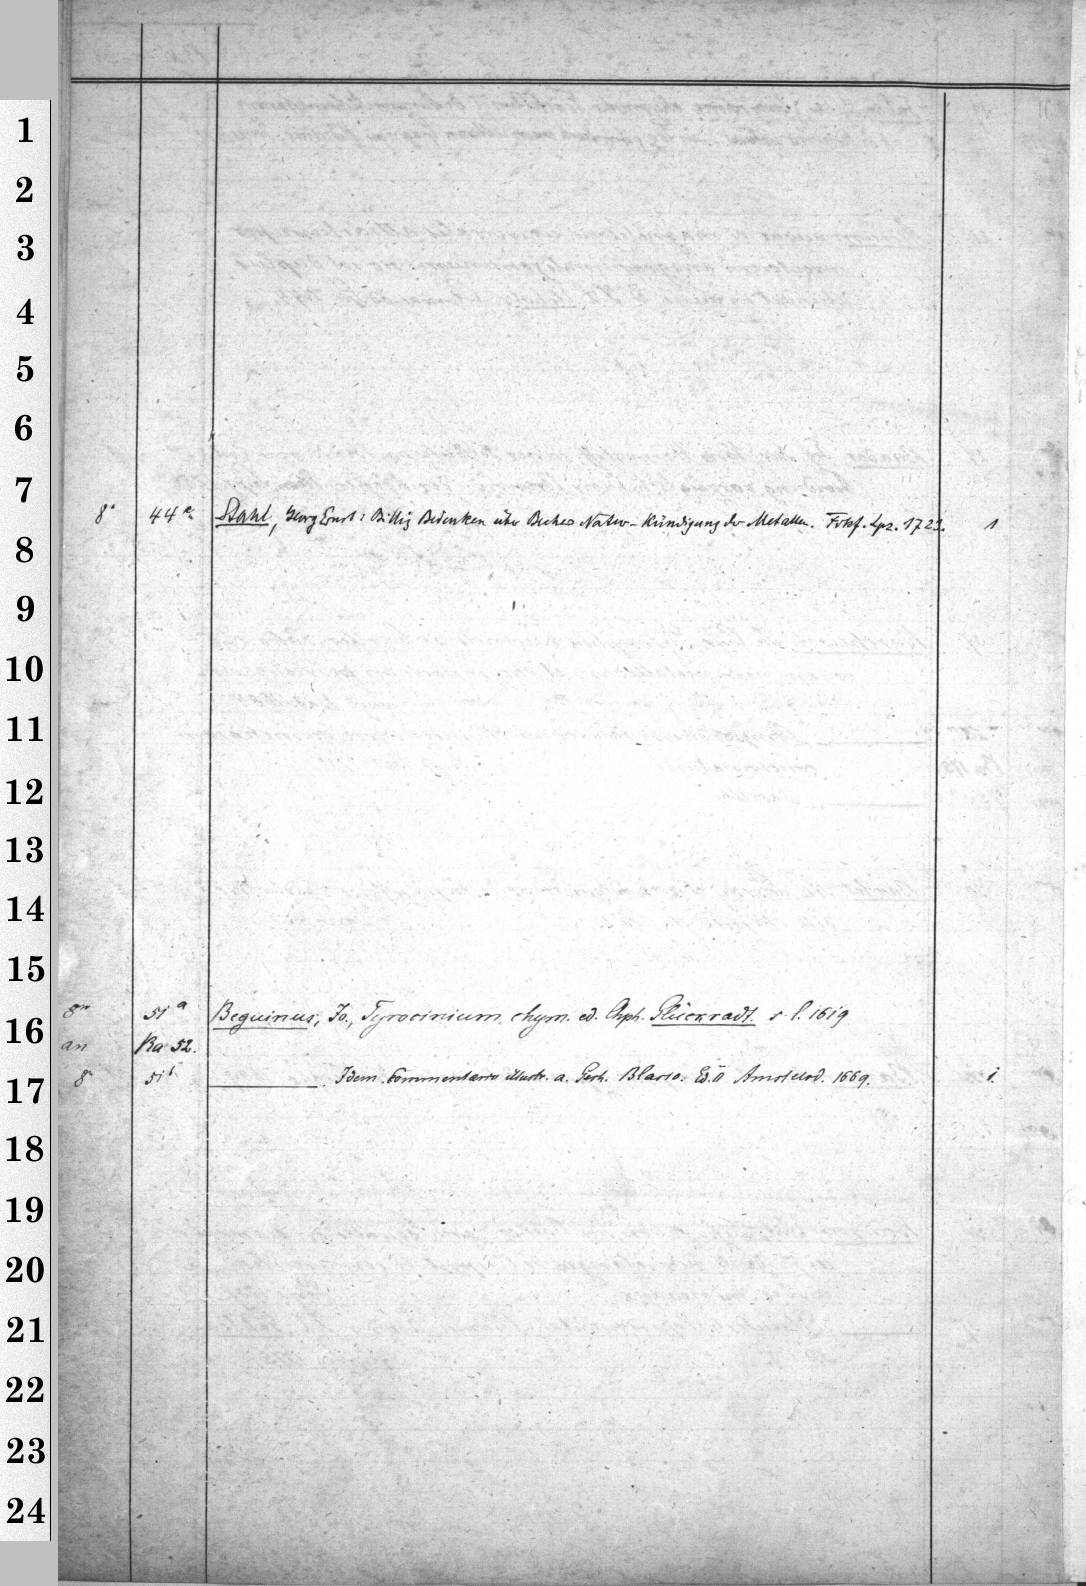 1
2
3
4
5
6
7
8° 44 a. Stahl, Georg Ernst: Billig Bedenken über Bechers Natur-Kündigung der Metallen. Frkf. Lpz. 1723. 1
8
9
10
11
12
13
14
15
8° 51 a Beguinus, Jo., Tyrocinium chym. ed. Chph. Glückradt. s. l. 1619
16
an Ra 52.
8 51 b ———. Idem. Commentario illustr. a. Gerh. Blasio. Ed. II Amstelod. 1669. 1.
17
18
19
20
21
22
23
24